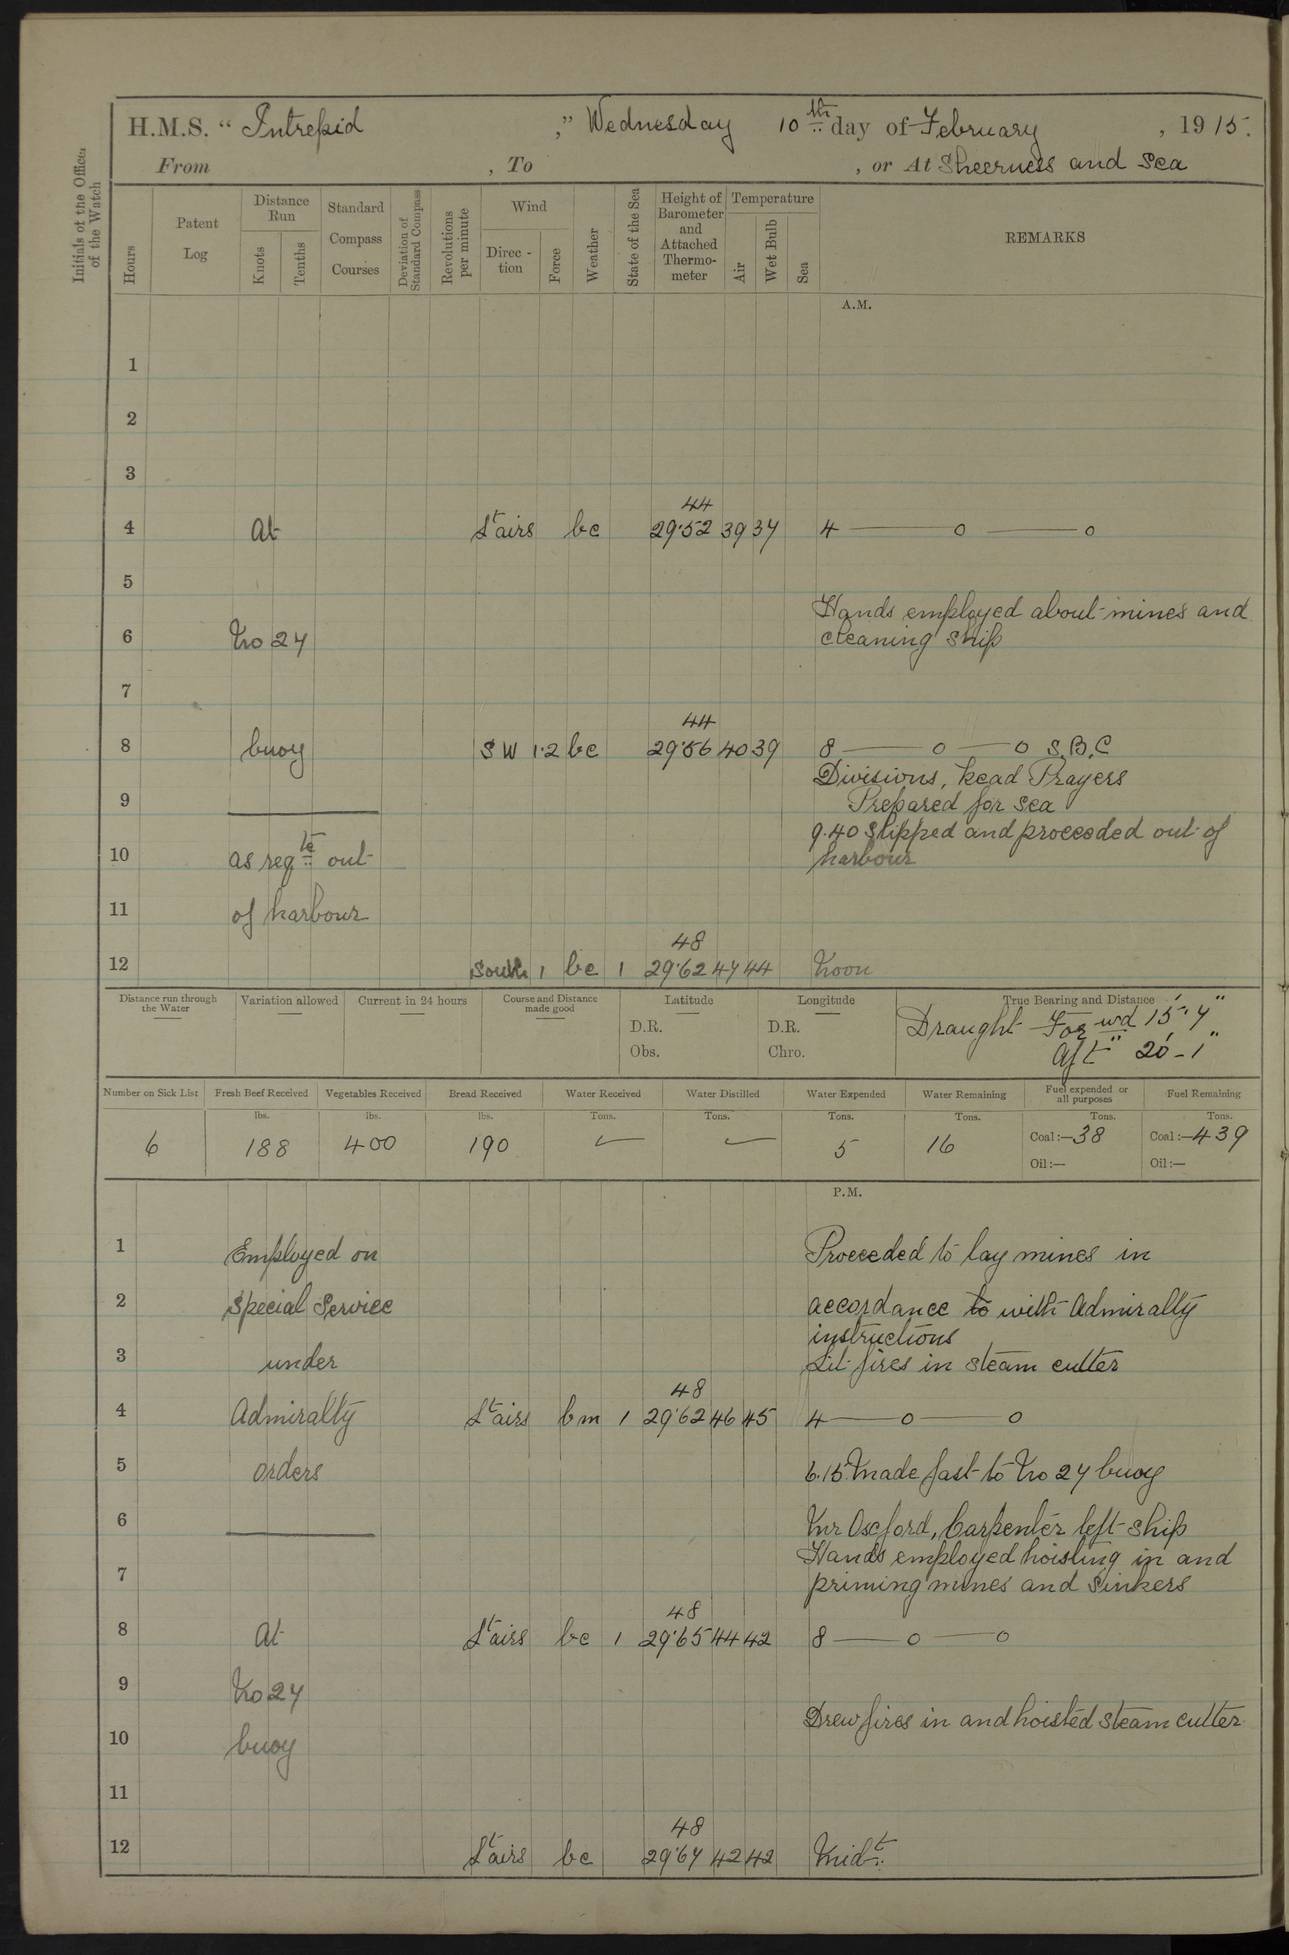 H.M.S. “ Intrepid ,” Wednesday 10th day of February , 1915.
From , To , or At Sheerness and Sea
Initials of the Officer of the Watch
Hours
Patent Log
Distance Run
Knots
Tenths
Standard Compass Courses
Deviation of Standard Compass
Revolutions per minute
Wind
Direc-tion
Force
Weather
State of the Sea
Height of Barometer and Attached Thermo-meter
Temperature
Air
Wet Bulb
Sea
REMARKS
A.M.
1
2
3
44
4 At Lt airs bc 29.52 39 37 4 —— o —— o
5
Hands employed about mines and
6 No 27 cleaning ship
7
44
8 buoy SW 1.2 bc 29.56 40 39 8 —— o —— o S.B.C
Divisions, read Prayers
9 Prepared for sea
9.40 Slipped and proceeded out of
10 as reqte out harbour
11 of harbour
48
12 South 1 bc 1 29.62 47 44 Noon
Distance run through the Water
Variation allowed
Current in 24 hours
Course and Distance made good
Latitude
D.R.
Obs.
Longitude
D.R.
Chro.
True Bearing and Distance
Draught Forwd 15' 7"
Aft 20' - 1"
Number on Sick List Fresh Beef Received Vegetables Received Bread Received Water Received Water Distilled Water Expended Water Remaining Fuel expended or all purposes Fuel Remaining
lbs. lbs. lbs. Tons. Tons. Tons. Tons. Tons. Tons.
6 188 400 190 — — 5 16 Coal:—38 Coal:—439
Oil:— Oil:—
P.M.
1 Employed on Proceeded to lay mines in
2 Special Service accordance to with Admiralty
instructions
3 under Lit fires in steam cutter
48
4 Admiralty Lt airs bm 1 29.62 46 45 4 —— o —— o
5 orders 6.15 Made fast to No 27 buoy
6 Mr Oxford, Carpenter left ship
Hands employed hoisting in and
7 priming mines and sinkers
48
8 At Lt airs bc 1 29.65 44 42 8 —— o —— o
9 No 27
Drew fires in and hoisted steam cutter
10 buoy
11
48
12 Lt airs bc 29.67 42 42 Midt